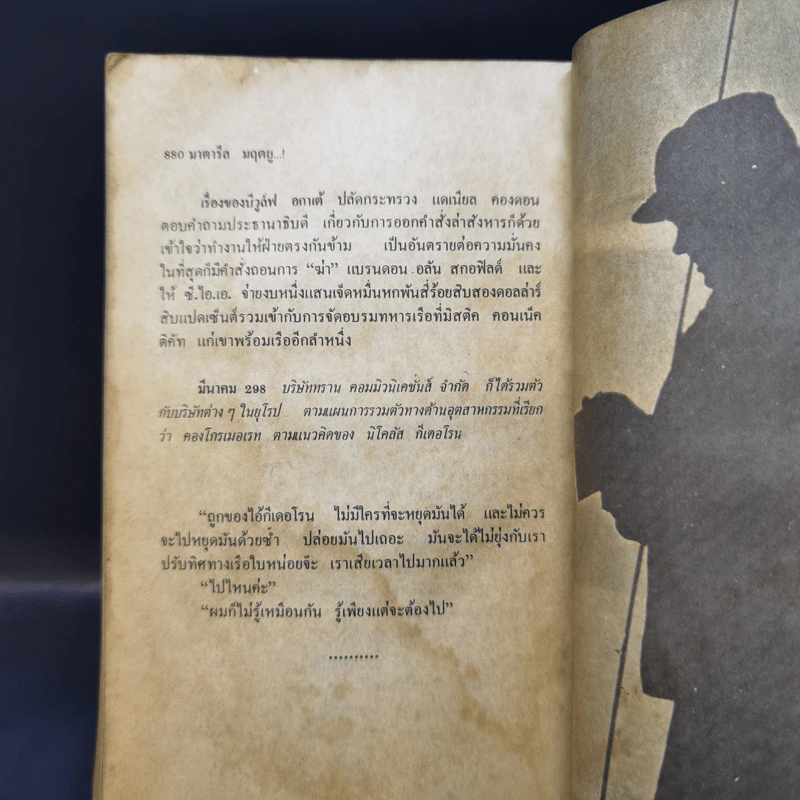 880 มาตารีส มฤตยู...!
เรื่องของบีวูล์ฟ อกาเต้ ปลัดกระทรวง แดเนียล คองดอน
ตอบคำถามประธานาธิบดี เกี่ยวกับการออกคำสั่งล่าสังหารก็ด้วย
เข้าใจว่าทำงานให้ฝ่ายตรงกันข้าม เป็นอันตรายต่อความมั่นคง
ในที่สุดก็มีคำสั่งถอนการ “ฆ่า” แบรนดอน อลัน สกอฟิลด์ และ
ให้ ซี.ไอ.เอ. จ่ายงบหนึ่งแสนเจ็ดหมื่นหกพันสี่ร้อยสิบสองดอลล่าร์
สิบแปดเซ็นต์รวมเข้ากับการจัดอบรมทหารเรือที่มิสติค คอนเน็ค
ติคัท แก่เขาพร้อมเรืออีกลำหนึ่ง
มีนาคม 298 บริษัททราน คอมมิวนิเคชั่นส์ จำกัด ก็ได้รวมตัว
กับบริษัทต่าง ๆ ในยุโรป ตามแผนการรวมตัวทางด้านอุตสาหกรรมที่เรียก
ว่า คองโกรเมอเรท ตามแนวคิดของ นิโคลัส กีเดอโรน
“ถูกของไอ้กีเดอโรน ไม่มีใครที่จะหยุดมันได้ และไม่ควร
จะไปหยุดมันด้วยซ้ำ ปล่อยมันไปเถอะ มันจะได้ไม่ยุ่งกับเรา
ปรับทิศทางเรือใบหน่อยจ๊ะ เราเสียเวลาไปมากแล้ว”
“ไปไหนค่ะ”
“ผมก็ไม่รู้เหมือนกัน รู้เพียงแต่จะต้องไป”
..........